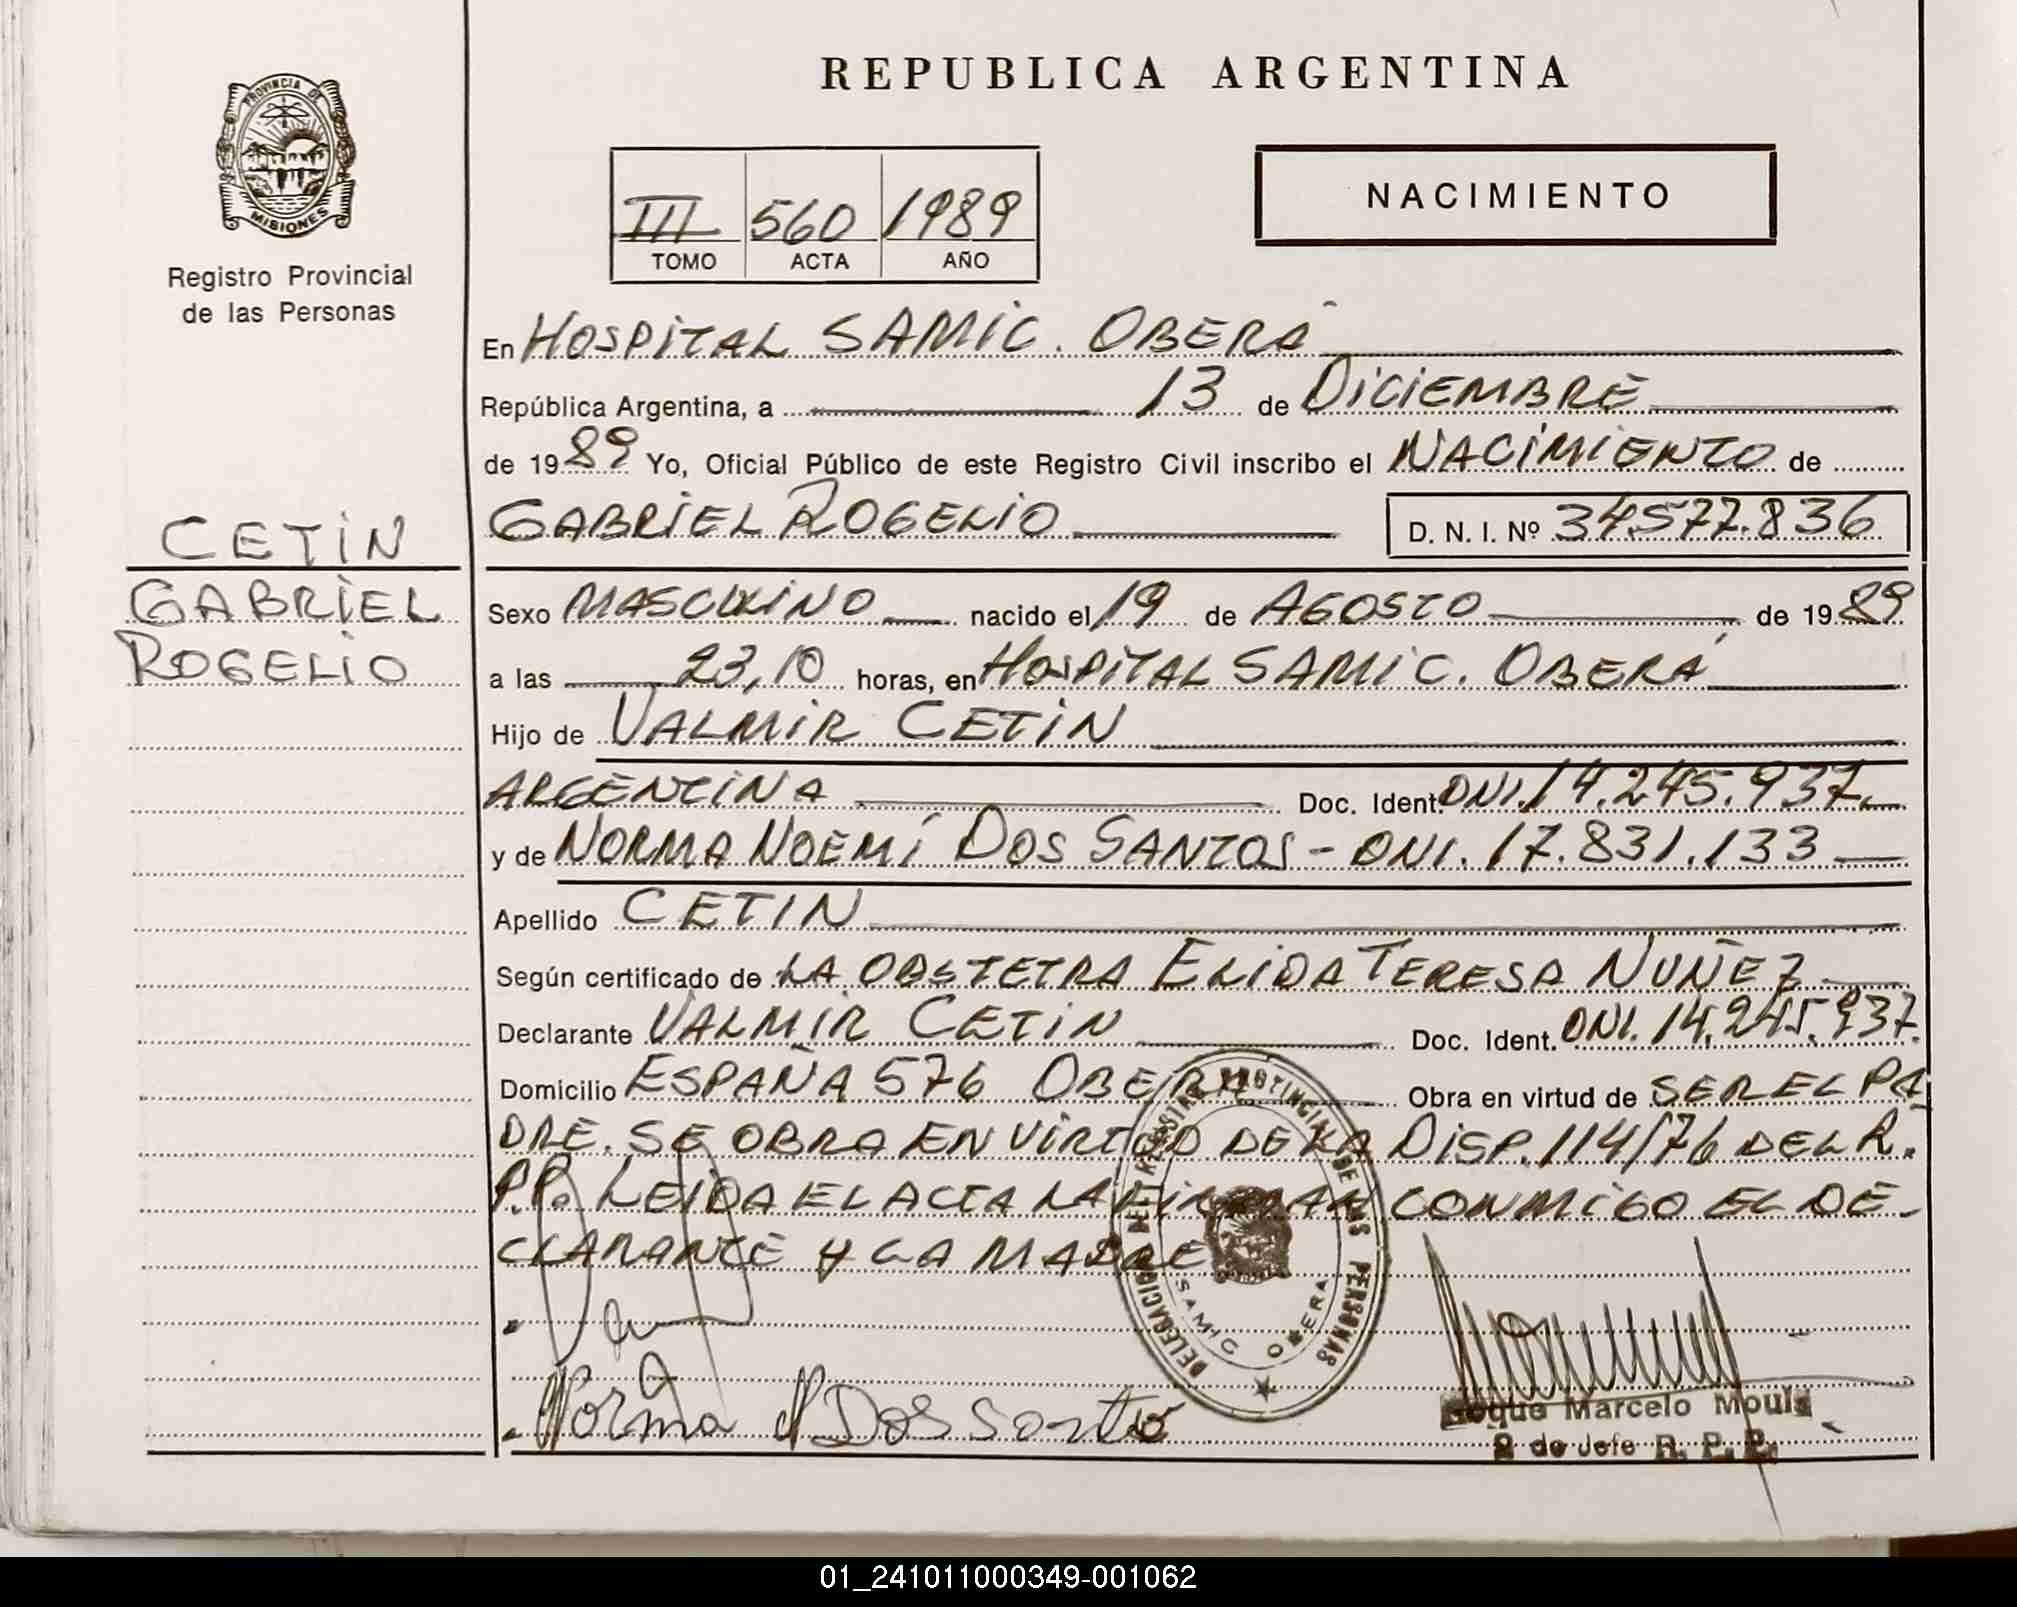 REPUBLICA ARGENTINA
PROVINCIA DE
MISIONES
Registro Provincial
de las Personas
III 560 1989
TOMO ACTA AÑO
NACIMIENTO
En HOSPITAL SAMIC. OBERÁ
República Argentina, a 13 de DICIEMBRE
de 1989 Yo, Oficial Público de este Registro Civil inscribo el NACIMIENTO de
GABRIEL ROGELIO D. N. I. Nº 34577.836
CETIN
GABRIEL
ROGELIO
Sexo MASCULINO nacido el 19 de AGOSTO de 1989
a las 23,10 horas, en HOSPITAL SAMIC. OBERÁ
Hijo de VALMIR CETIN
ARGENTINA Doc. Ident. DNI. 14.245.937.
y de NORMA NOEMÍ DOS SANTOS - DNI. 17.831.133
Apellido CETIN
Según certificado de LA OBSTETRA ELIDA TERESA NUÑEZ
Declarante VALMIR CETIN Doc. Ident. DNI. 14.245.937.
Domicilio ESPAÑA 576 OBERA Obra en virtud de SER EL PA-
DRE. SE OBRA EN VIRTUD DE LA DISP. 114/76 DEL R.
P.P. LEIDA EL ACTA LA FIRMAN CONMIGO EL DE-
CLARANTE Y LA MADRE
DELEGACION DEL REGISTRO PROVINCIAL DE LAS PERSONAS
SAMIC OBERA
Norma N Dos Santos
Roque Marcelo Mouls
2 do Jefe R. P. P.
01_241011000349-001062